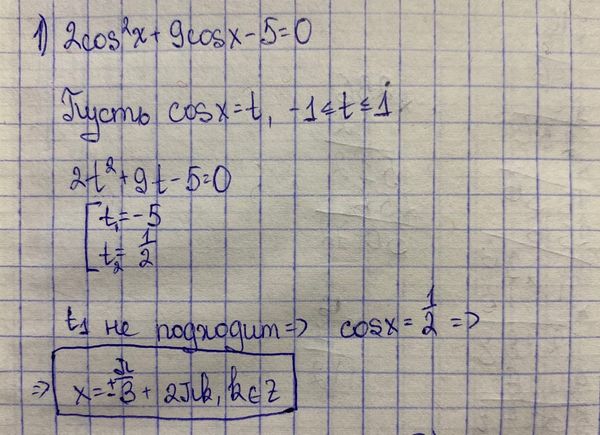 1) 2cos²x + 9cosx - 5 = 0
Пусть cosx = t, -1 ≤ t ≤ 1
2t² + 9t - 5 = 0
[ t₁ = -5
t₂ = 1/2
t₁ не подходит => cosx = 1/2 =>
=> x = ± π/3 + 2πk, k ∈ Z